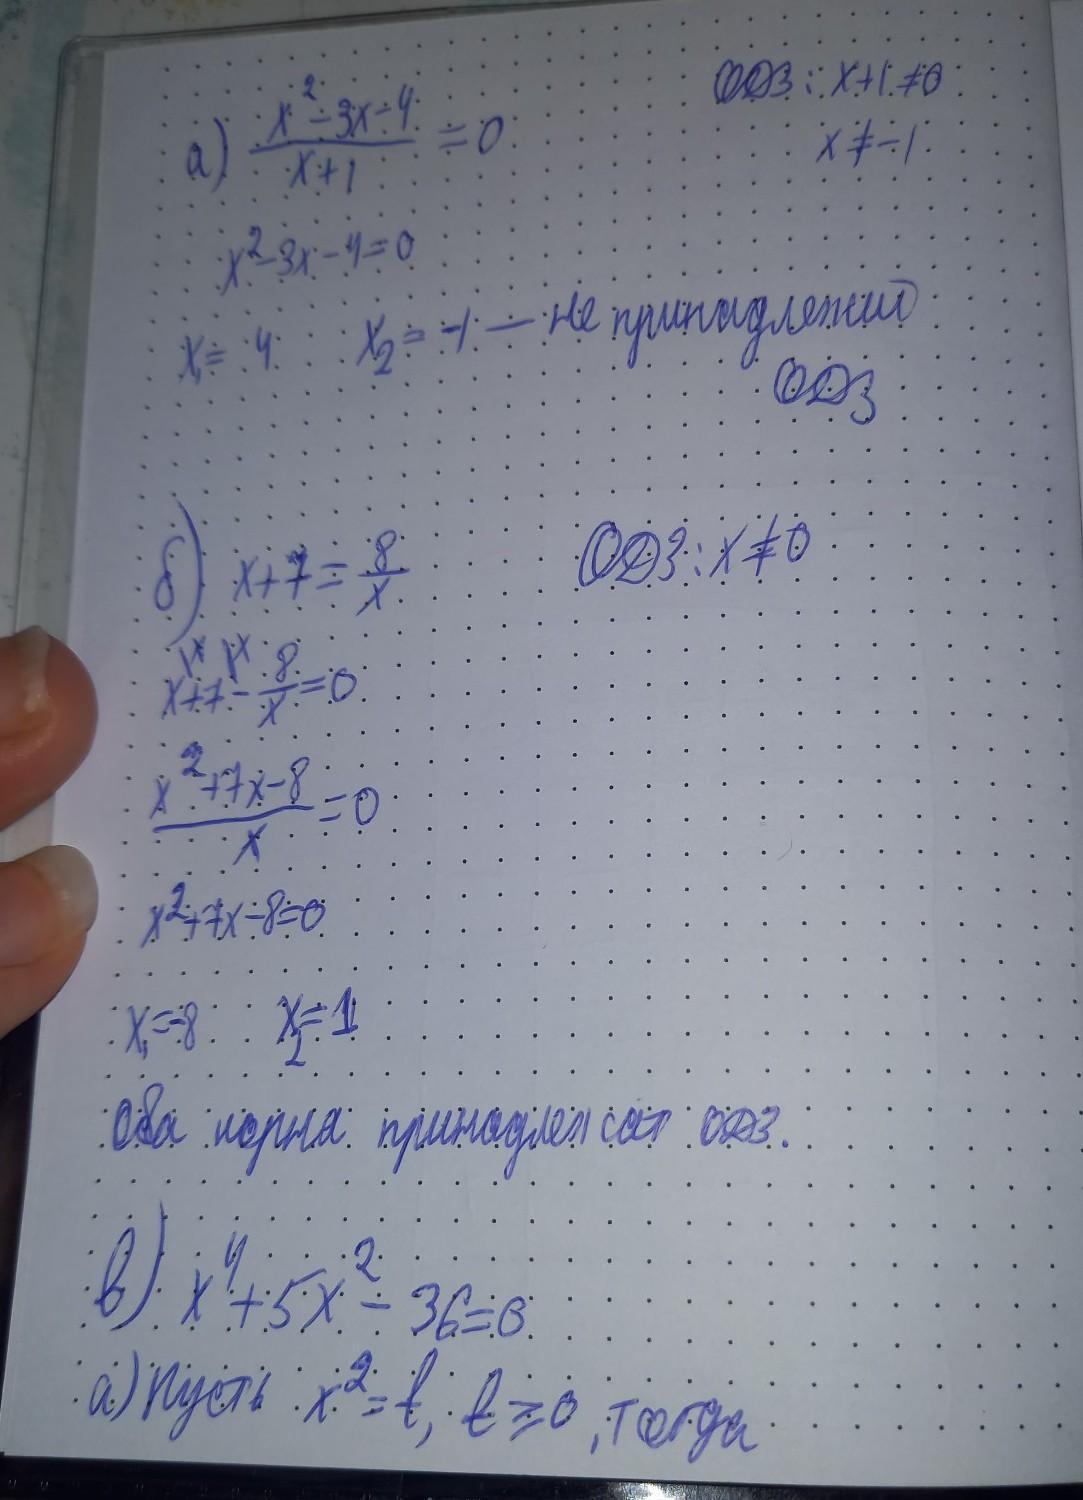 а) (x²-3x-4)/(x+1) = 0 ОДЗ: x+1≠0
x≠-1
x²-3x-4=0
x₁= 4 x₂=-1 — не принадлежит
ОДЗ
б) x+7=8/x ОДЗ: x≠0
x+7-8/x=0
(x²+7x-8)/x=0
x²+7x-8=0
x₁=-8 x₂=1
Оба корня принадлежат ОДЗ.
в) x⁴+5x²-36=0
а) Пусть x²=t, t≥0, тогда